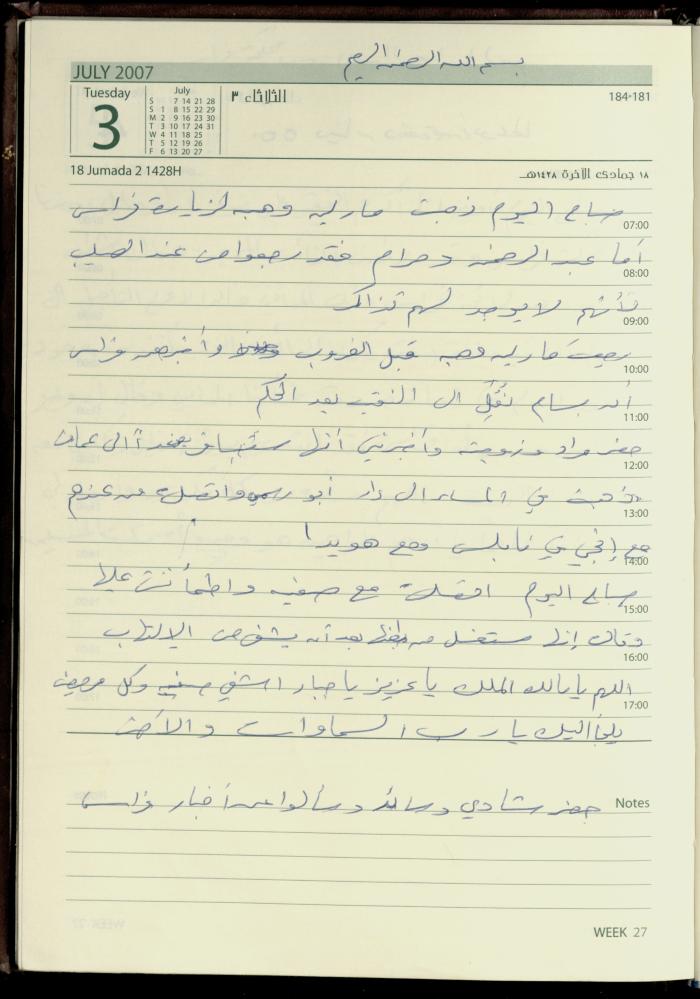 بسم الله الرحمن الرحيم
JULY 2007
Tuesday
3
July
S 7 14 21 28
S 1 8 15 22 29
M 2 9 16 23 30
T 3 10 17 24 31
W 4 11 18 25
T 5 12 19 26
F 6 13 20 27
الثلاثاء ٣
184-181
18 Jumada 2 1428H
١٨ جمادى الآخرة ١٤٢٨هـ
صباح اليوم ذهبت ماريه وهبه لزيارة فراس
07:00
أما عبد الرحمن ومرام فقد رجعوا من عند الصليب
08:00
لأنهم لا يوجد لهم تذاكر
09:00
رجعت ماريه وهبه قبل الغروب وأخبرهم فراس
10:00
أن بسام نُقِلَ الى النقب بعد الحكم
11:00
حضر مراد وزوجته وأخبرني أنها ستسافر غداً الى عمان
12:00
ذهبت في المساء الى دار أبو واتصلت من عندهم
13:00
مع إفي في نابلس ومع هويدا
14:00
صباح اليوم اتصلت مع صفيه واطمأننت عليها
15:00
وقالت إنها ستغسل من بعد أن يشفى من الإلتهاب
16:00
اللهم يا مالك الملك يا عزيز يا جبار اشفي صفيه وكل مريض
17:00
يلجأ اليك يا رب السماوات والأرض
Notes
حضر شادي وسائد وسألوا عن أخبار فراس
WEEK 27